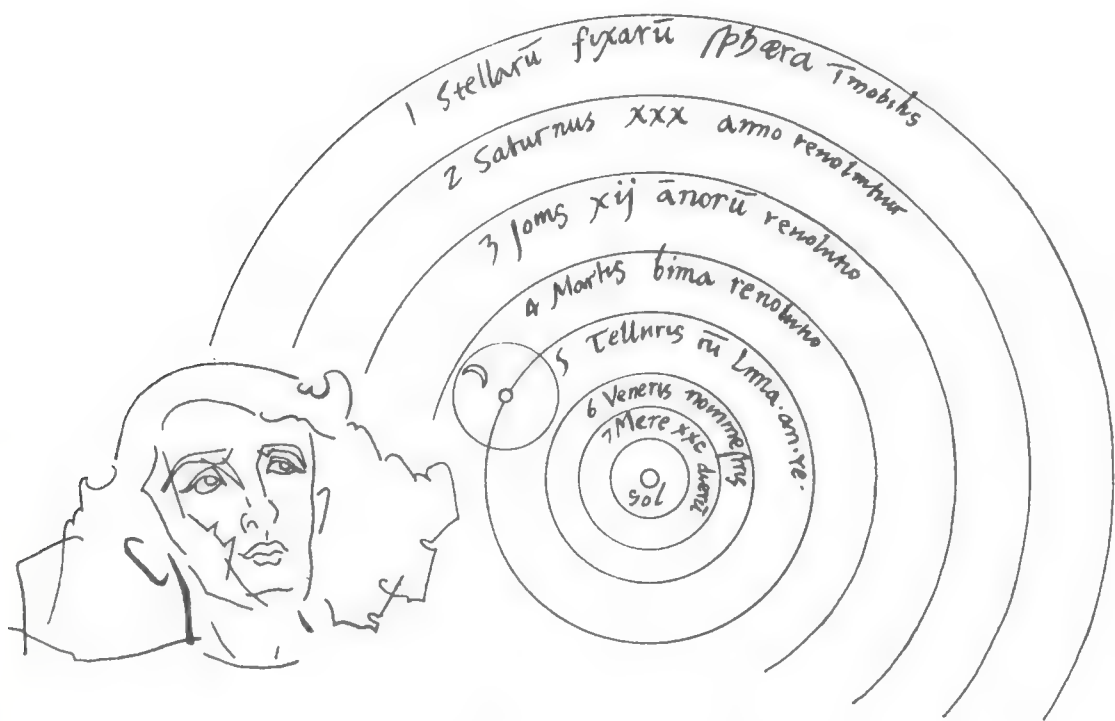 1 Stellarū fyxarū sphæra Īmobilis
2 Saturnus xxx anno revolvitur
3 Jovis xij ānorū revolutio
4 Martis bima revolutio
5 Telluris cū Luna. an. re.
6 Veneris nonimestris
7 Merc xxc dierū
Sol